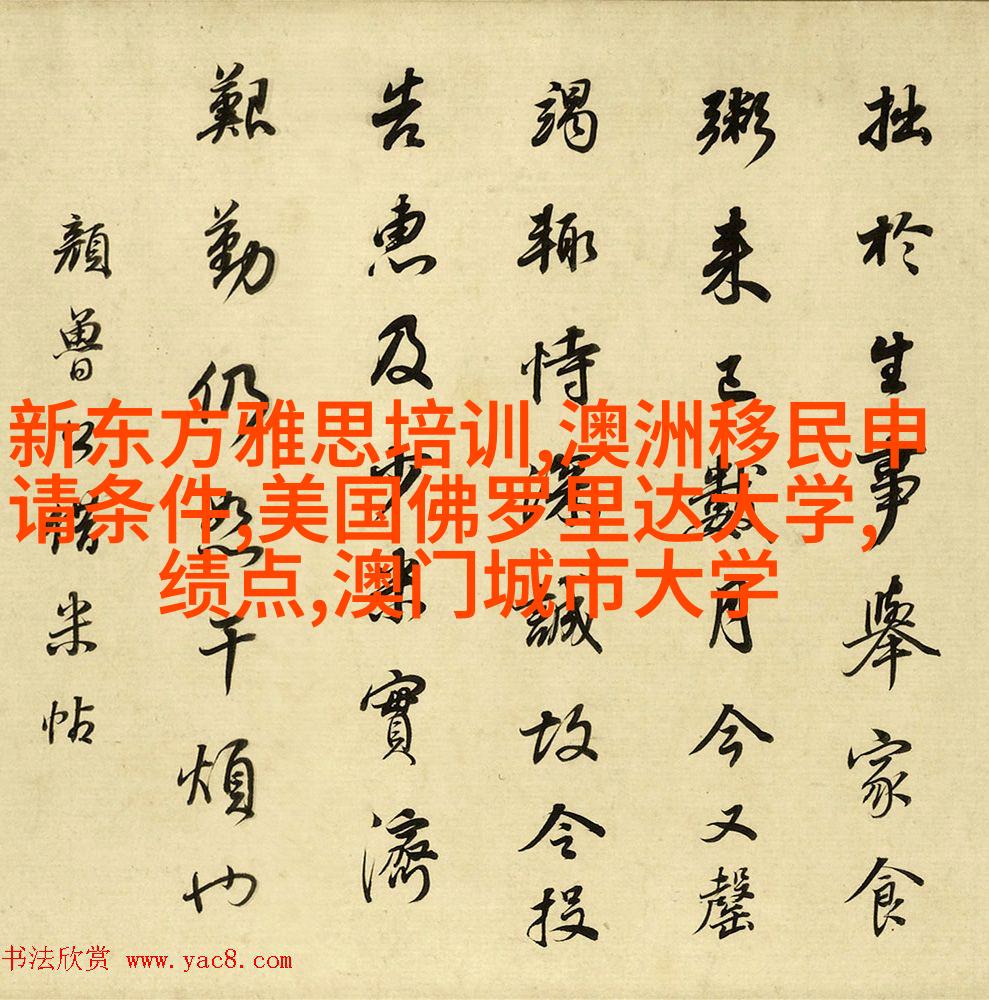 拙於生事舉家食
粥来已數月今又罄
竭輙恃深誠故令投
告惠及少米實濟
艱勤仍恕干煩也
顏魯公米帖
新东方雅思培训,澳洲移民申
请条件,美国佛罗里达大学,
绩点,澳门城市大学
书法欣赏 www.yac8.com